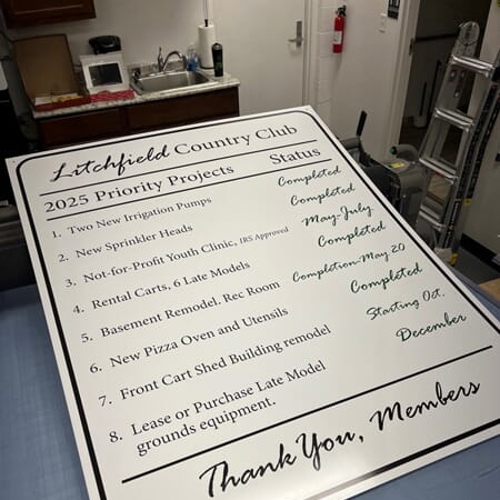 Litchfield Country Club
2025 Priority Projects Status
1. Two New Irrigation Pumps Completed
2. New Sprinkler Heads Completed
3. Not-for-Profit Youth Clinic, IRS Approved May-July
4. Rental Carts, 6 Late Models Completed
5. Basement Remodel. Rec Room Completion-May 20
6. New Pizza Oven and Utensils Completed
7. Front Cart Shed Building remodel Starting Oct.
8. Lease or Purchase Late Model December
grounds equipment.
Thank You, Members